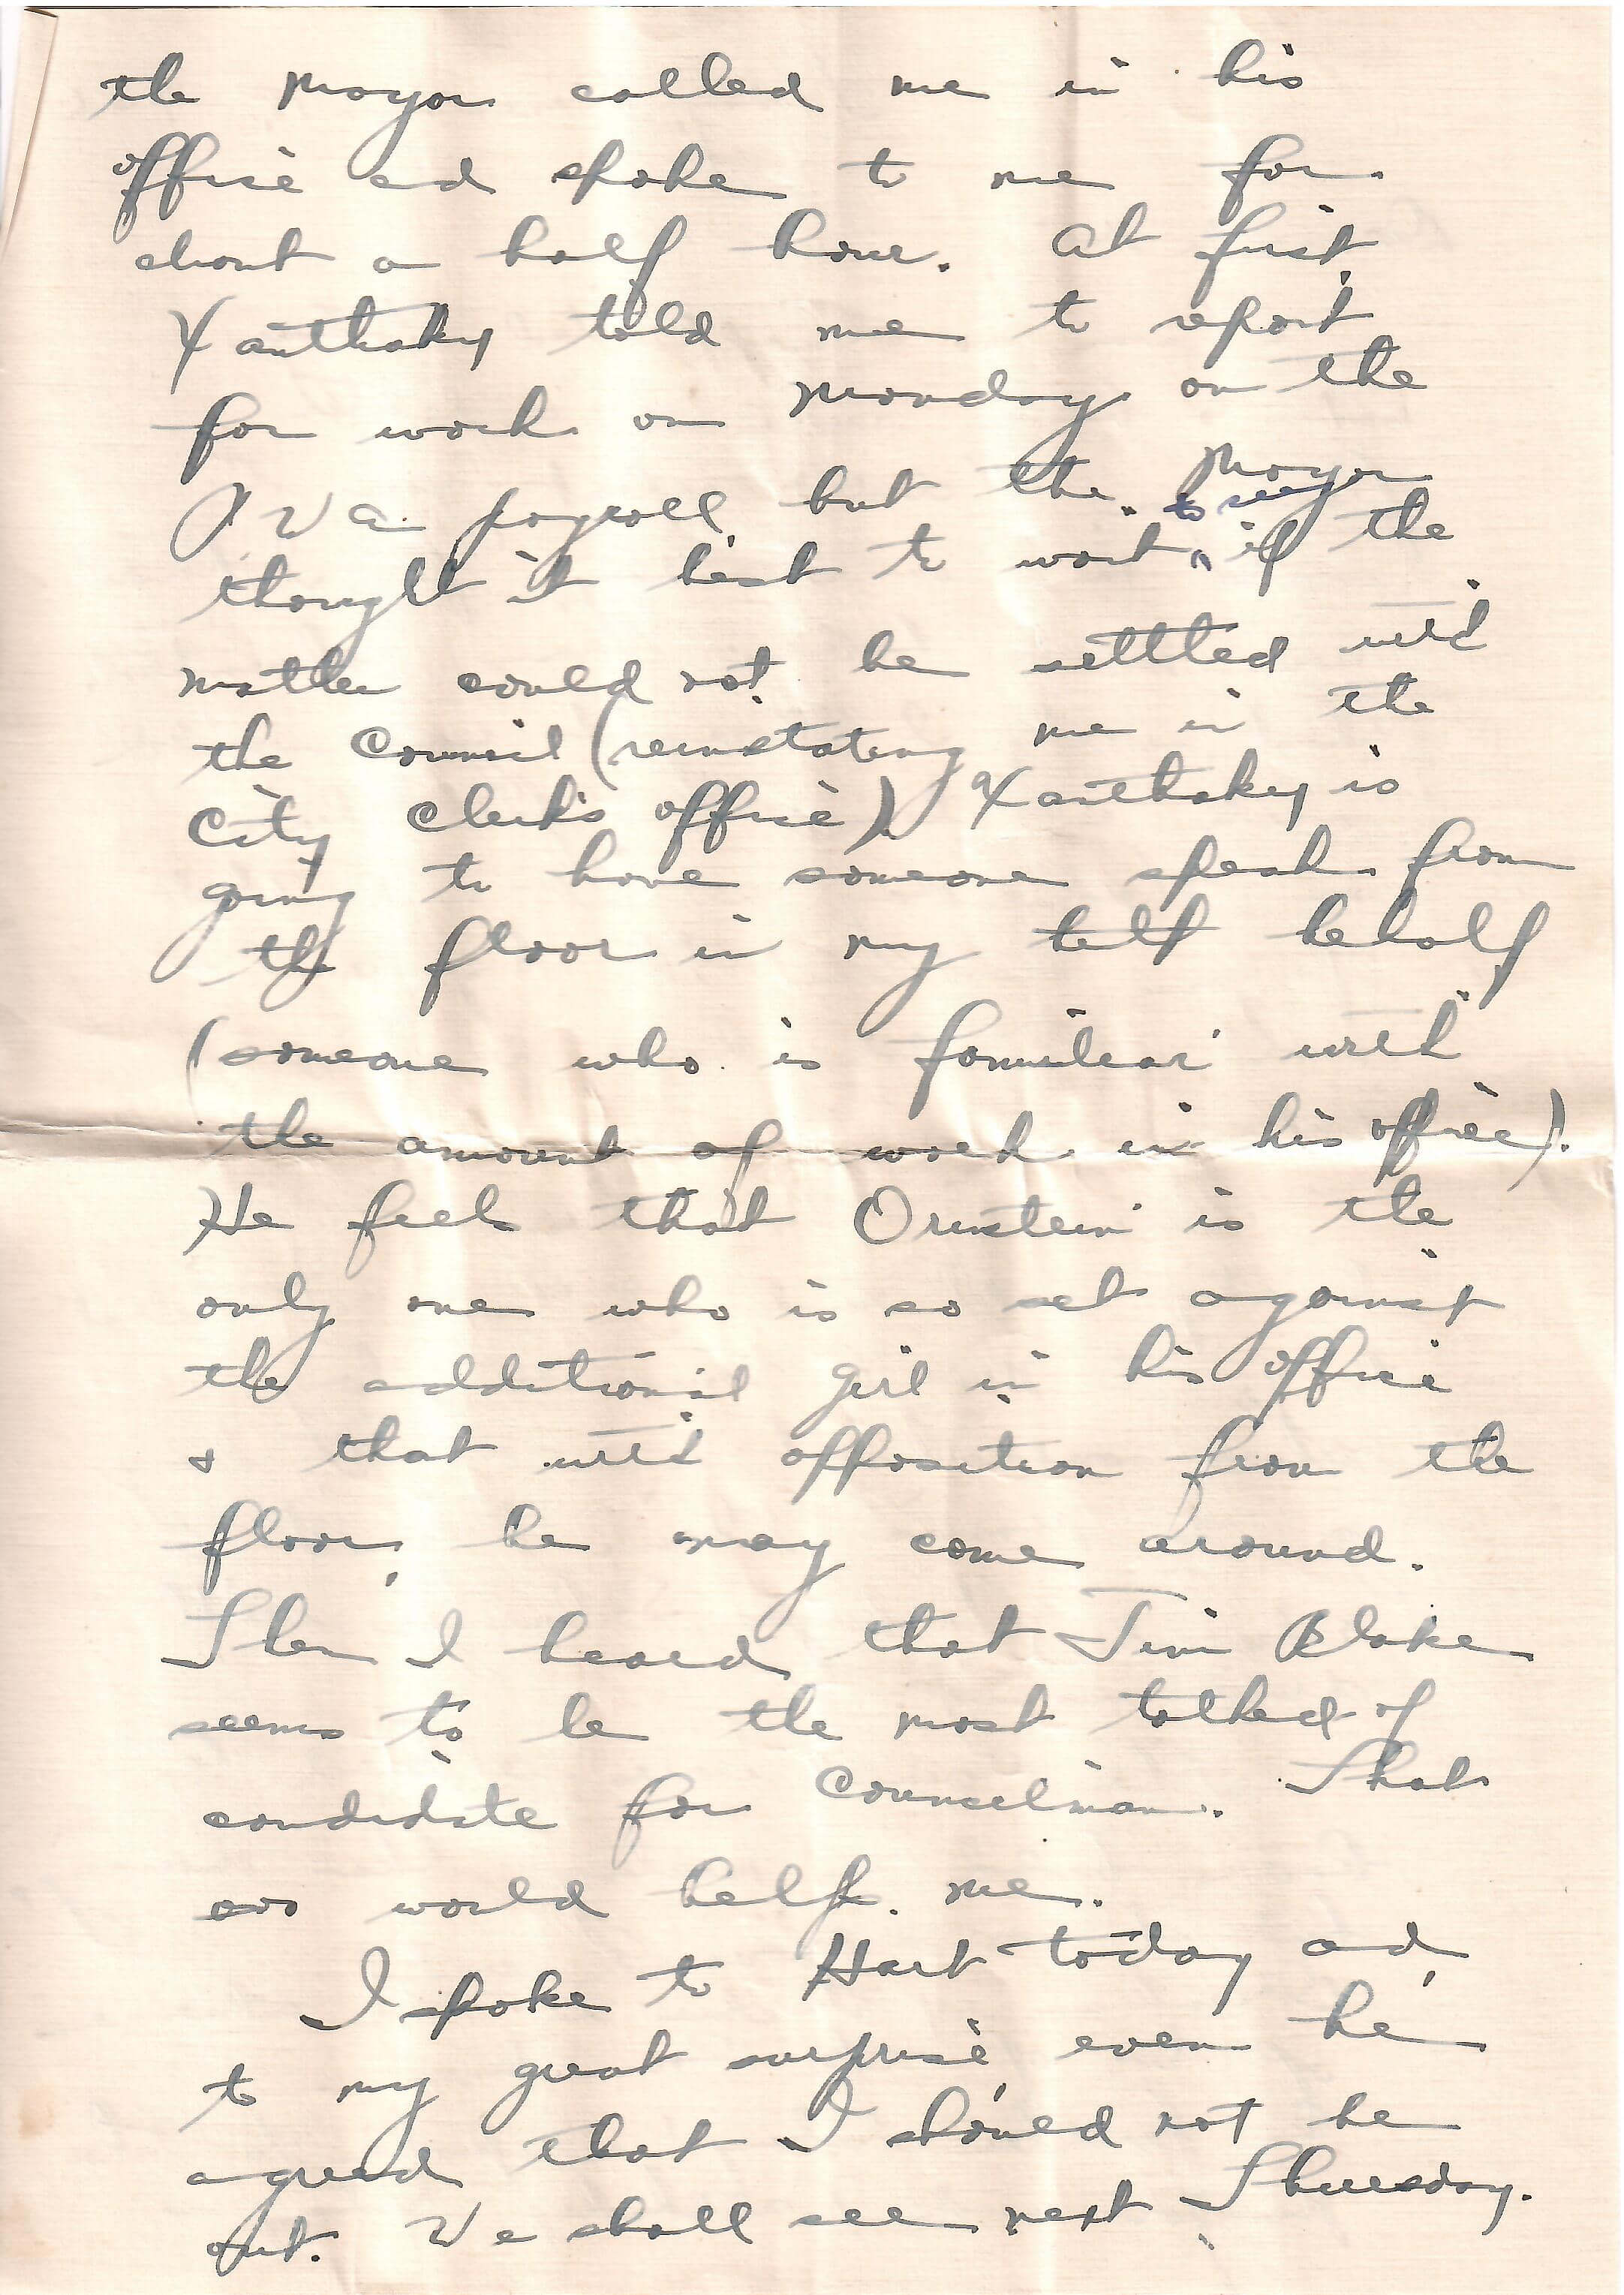 the Mayor called me in his
office and spoke to me for
about a half hour. At first,
Xanthaky told me to report
for work on Monday on the
P W A payroll, but the Mayor
thought it best to wait, to see if the
matter could not be settled with
the Council (reinstating me in the
City Clerk's office). Xanthaky is
going to have someone speak from
the floor in my behalf
(someone who is familiar with
the amount of work in his office).
He feels that Ornstein is the
only one who is so set against
the additional girl in his office
& that with opposition from the
floor, he may come around.
Then I heard that Jim Blake
seems to be the most talked of
candidate for Councilman. That
would help me.
I spoke to Hart today and,
to my great surprise, even he
agreed that I should not be
out. We shall see next Thursday.